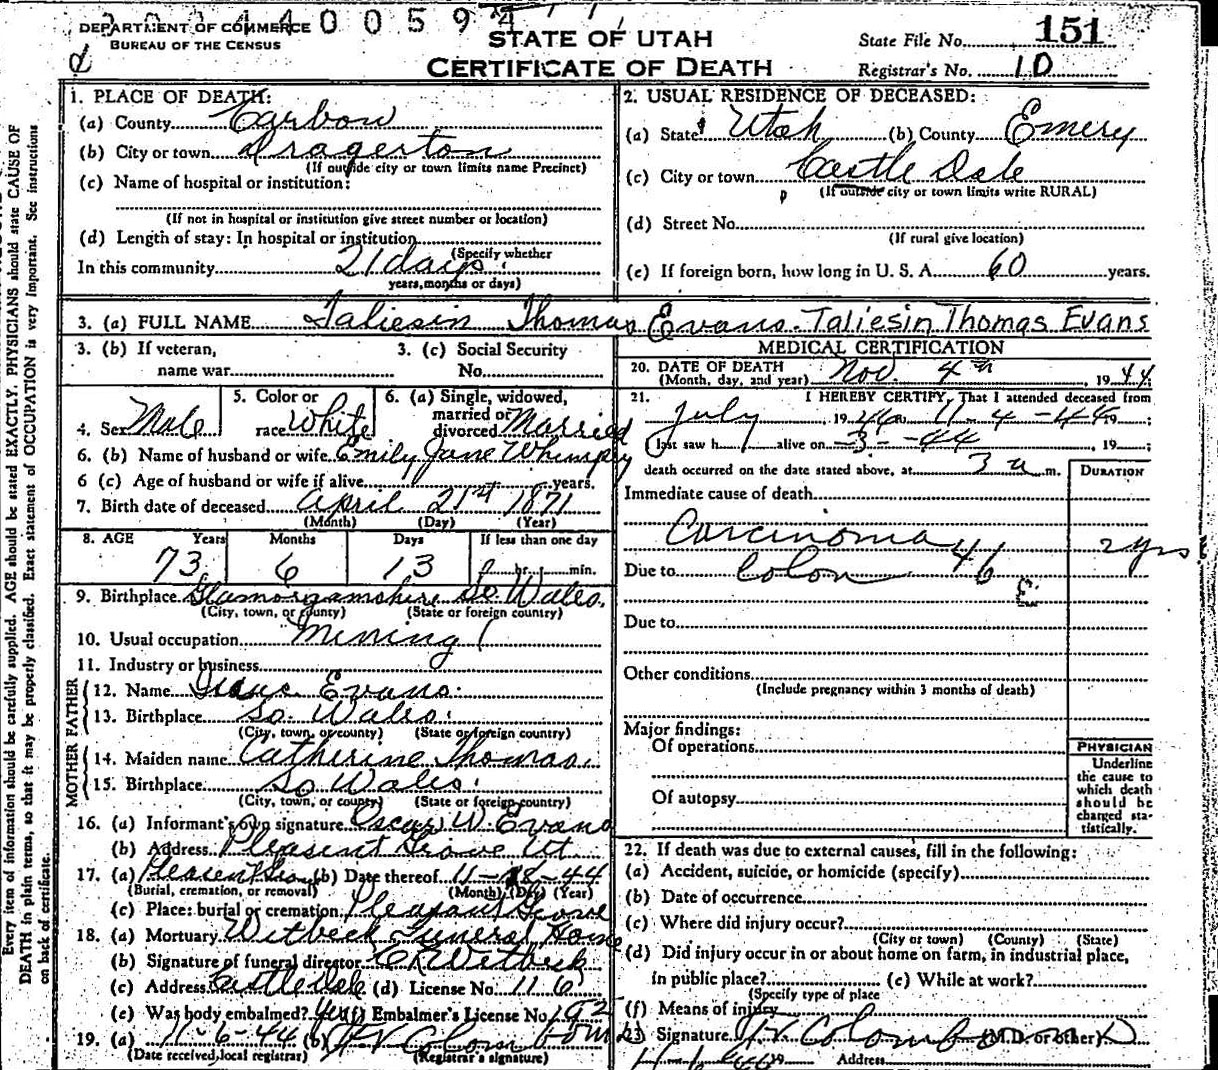 2 0 0 4 4 0 0 5 9 4
DEPARTMENT OF COMMERCE
BUREAU OF THE CENSUS
STATE OF UTAH
CERTIFICATE OF DEATH
State File No. 151
Registrar's No. 10
1. PLACE OF DEATH:
(a) County Carbon
(b) City or town Dragerton
(If outside city or town limits name Precinct)
(c) Name of hospital or institution:
(If not in hospital or institution give street number or location)
(d) Length of stay: In hospital or institution
(Specify whether
In this community 21 days
years, months or days)
2. USUAL RESIDENCE OF DECEASED:
(a) State Utah (b) County Emery
(c) City or town Castle Dale
(If outside city or town limits write RURAL)
(d) Street No.
(If rural give location)
(e) If foreign born, how long in U. S. A. 60 years.
3. (a) FULL NAME Taliesin Thomas Evans. Taliesin Thomas Evans
3. (b) If veteran, name war
3. (c) Social Security No.
4. Sex Male
5. Color or race White
6. (a) Single, widowed, married or divorced Married
6. (b) Name of husband or wife Emily Jane Whimpey
6 (c) Age of husband or wife if alive years.
7. Birth date of deceased April 21st 1871
(Month) (Day) (Year)
8. AGE Years Months Days If less than one day
73 6 13 hr. min.
9. Birthplace Glamorganshire So Wales.
(City, town, or county) (State or foreign country)
10. Usual occupation Mining
11. Industry or business
FATHER
12. Name Isaac Evans.
13. Birthplace So. Wales.
(City, town, or county) (State or foreign country)
MOTHER
14. Maiden name Catherine Thomas.
15. Birthplace So Wales.
(City, town, or county) (State or foreign country)
16. (a) Informant's own signature Oscar W. Evans
(b) Address Pleasent Grove Ut
17. (a) Pleasent Grove (b) Date thereof 11-8-44
(Burial, cremation, or removal) (Month) (Day) (Year)
(c) Place: burial or cremation Pleasant Grove
18. (a) Mortuary Witbeck Funeral Home
(b) Signature of funeral director C R Witbeck
(c) Address Castle Dale (d) License No. 116
(e) Was body embalmed? Yes (f) Embalmer's License No. 192
19. (a) 11-6-44 (b) Colombo
(Date received, local registrar) (Registrar's signature)
MEDICAL CERTIFICATION
20. DATE OF DEATH
(Month, day, and year) Nov. 4th, 1944
21. I HEREBY CERTIFY, That I attended deceased from
July, 19 11-4-44 19 ;
I last saw h alive on -3-44, 19 ;
death occurred on the date stated above, at 3 a m.
DURATION
Immediate cause of death
Carcinoma 2 yrs
Due to Colon 46
E
Due to
Other conditions
(Include pregnancy within 3 months of death)
Major findings:
Of operations
Of autopsy
PHYSICIAN
Underline
the cause to
which death
should be
charged sta-
tistically.
22. If death was due to external causes, fill in the following:
(a) Accident, suicide, or homicide (specify)
(b) Date of occurrence
(c) Where did injury occur?
(City or town) (County) (State)
(d) Did injury occur in or about home on farm, in industrial place,
in public place? (e) While at work?
(Specify type of place
(f) Means of injury
23) Signature Colombo (M.D. or other)
19 Address
Every item of information should be carefully supplied. AGE should be stated EXACTLY. PHYSICIANS should state CAUSE OF
DEATH in plain terms, so that it may be properly classified. Exact statement of OCCUPATION is very important. See instructions
on back of certificate.